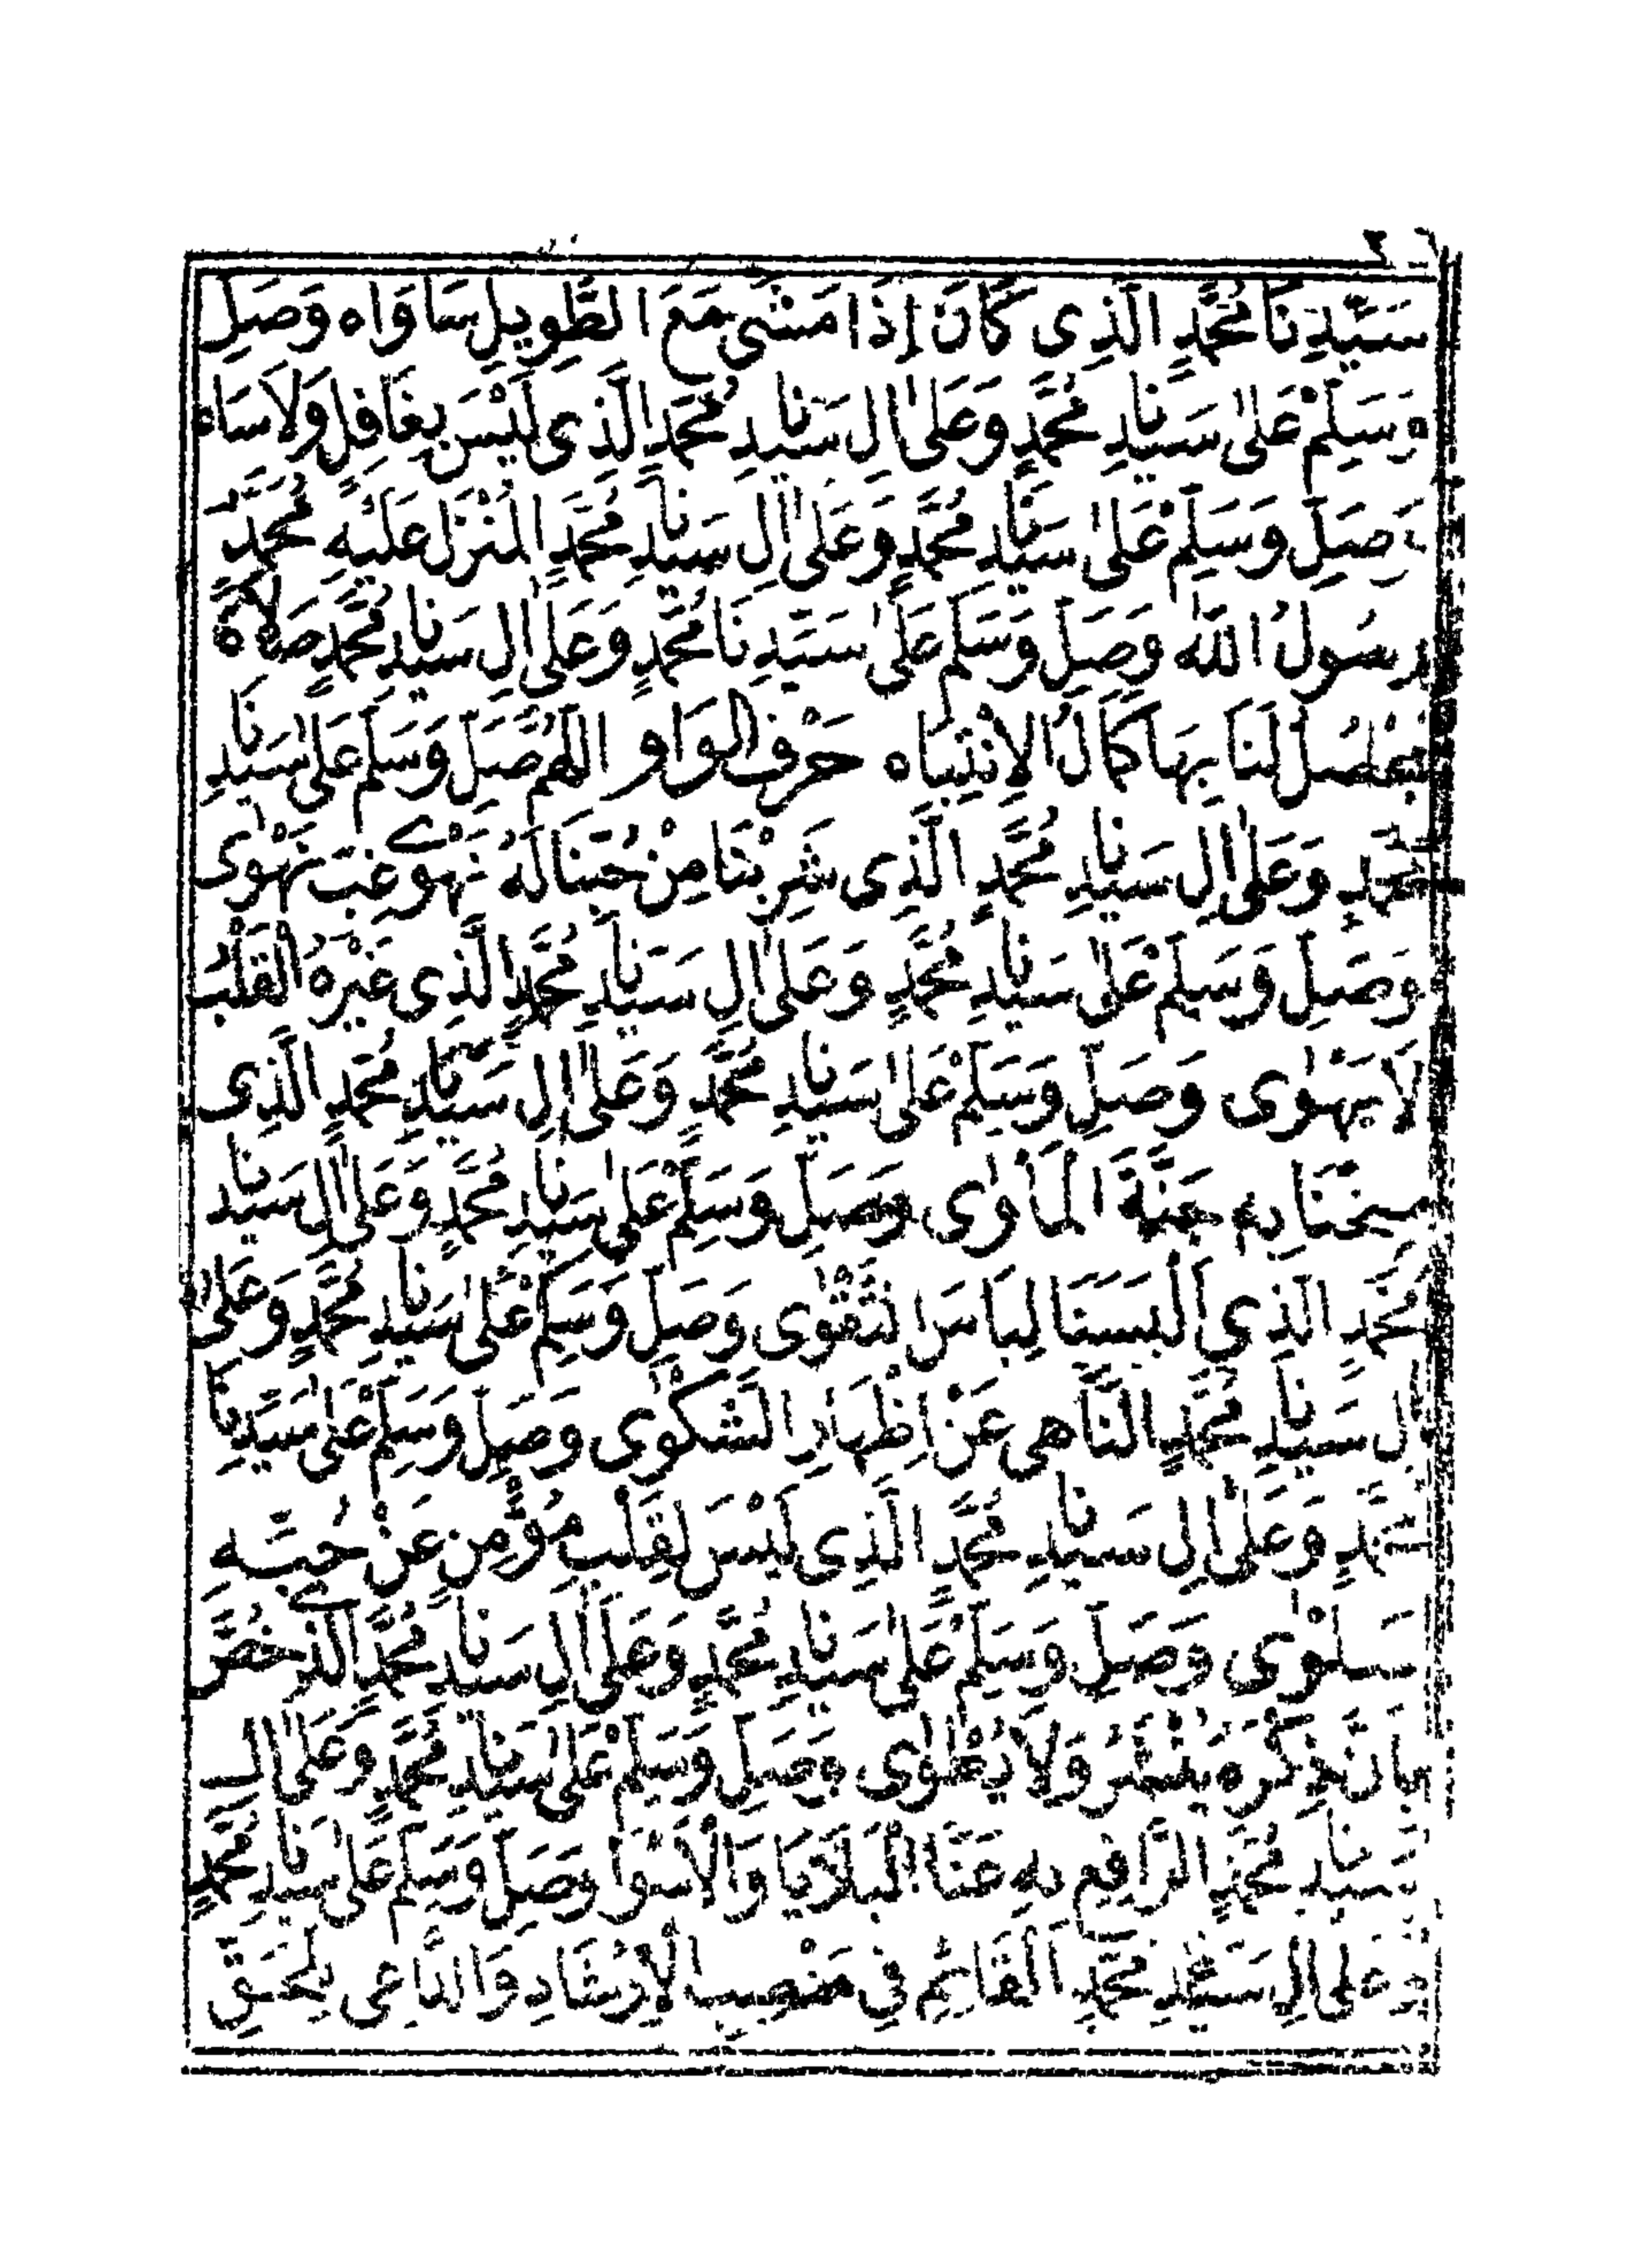 سَيِّدِنَا مُحَمَّدٍ الَّذِى كَانَ إِذَا مَشٰى مَعَ الطَّوِيلِ سَاوَاه وَصَلِّ
وَسَلِّمْ عَلٰى سَيِّدِنَا مُحَمَّدٍ وَعَلٰى اٰلِ سَيِّدِنَا مُحَمَّدٍ الَّذِى لَيْسَ بِغَافِلٍ وَلَا سَاه
وَصَلِّ وَسَلِّمْ عَلٰى سَيِّدِنَا مُحَمَّدٍ وَعَلٰى اٰلِ سَيِّدِنَا مُحَمَّدٍ الْمُنْزَلِ عَلَيْهِ مُحَمَّدٌ
رَسُولُ اللّٰه وَصَلِّ وَسَلِّمْ عَلٰى سَيِّدِنَا مُحَمَّدٍ وَعَلٰى اٰلِ سَيِّدِنَا مُحَمَّدٍ صَلَاةً
يَحْصُلُ لَنَا بِهَا كَمَالُ الْاِنْتِبَاه حَرْفُ الْوَاو اللّٰهُمَّ صَلِّ وَسَلِّمْ عَلٰى سَيِّدِنَا
مُحَمَّدٍ وَعَلٰى اٰلِ سَيِّدِنَا مُحَمَّدٍ الَّذِى شَرِبْنَا مِنْ حُبِّنَا لَهُ غِبَّ
وَصَلِّ وَسَلِّمْ عَلٰى سَيِّدِنَا مُحَمَّدٍ وَعَلٰى اٰلِ سَيِّدِنَا مُحَمَّدٍ الَّذِى غَيْرَهُ الْقَلْبُ
لَا يَهْوٰى وَصَلِّ وَسَلِّمْ عَلٰى سَيِّدِنَا مُحَمَّدٍ وَعَلٰى اٰلِ سَيِّدِنَا مُحَمَّدٍ الَّذِى
بِهِ جَنَّةَ الْمَأْوٰى وَصَلِّ وَسَلِّمْ عَلٰى سَيِّدِنَا مُحَمَّدٍ وَعَلٰى اٰلِ سَيِّدِنَا
مُحَمَّدٍ الَّذِى اَلْبَسَنَا لِبَاسَ التَّقْوٰى وَصَلِّ وَسَلِّمْ عَلٰى سَيِّدِنَا مُحَمَّدٍ وَعَلٰى
اٰلِ سَيِّدِنَا مُحَمَّدٍ النَّاهِى عَنْ اِظْهَارِ الشَّكْوٰى وَصَلِّ وَسَلِّمْ عَلٰى سَيِّدِنَا
مُحَمَّدٍ وَعَلٰى اٰلِ سَيِّدِنَا مُحَمَّدٍ الَّذِى لَيْسَ لِقَلْبِ مُؤْمِنٍ عَنْ حُبِّهِ
سَلْوٰى وَصَلِّ وَسَلِّمْ عَلٰى سَيِّدِنَا مُحَمَّدٍ وَعَلٰى اٰلِ سَيِّدِنَا مُحَمَّدٍ الَّذِى خُصَّ
بِاَنَّ ذِكْرَهُ يُنْشَرُ وَلَا يُطْوٰى وَصَلِّ وَسَلِّمْ عَلٰى سَيِّدِنَا مُحَمَّدٍ وَعَلٰى اٰلِ
سَيِّدِنَا مُحَمَّدٍ الرَّافِعِ بِهِ عَنَّا الْبَلَايَا وَالْاَسْوَا وَصَلِّ وَسَلِّمْ عَلٰى سَيِّدِنَا مُحَمَّدٍ
وَعَلٰى اٰلِ سَيِّدِنَا مُحَمَّدٍ الْقَائِمِ فِى مَنْصِبِ الْاِرْشَادِ وَالدَّاعِى لِلْحَقِّ